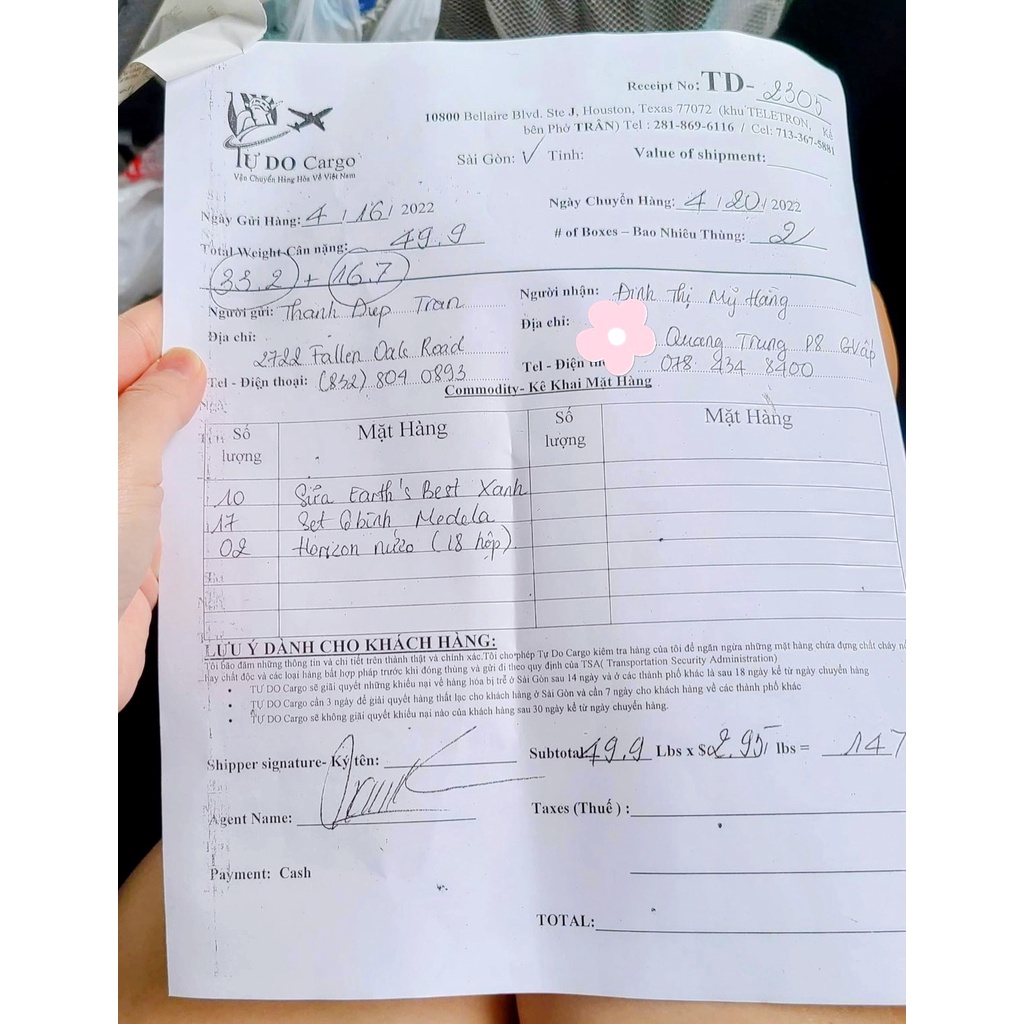 Receipt No: TD- 2305
10800 Bellaire Blvd. Ste J, Houston, Texas 77072 (khu TELETRON, Kế
bên Phở TRẦN) Tel : 281-869-6116 / Cel: 713-367-5881
TỰ DO Cargo
Vận Chuyển Hàng Hóa Về Việt Nam
Sài Gòn: √ Tỉnh: Value of shipment:
Ngày Gửi Hàng: 4 / 16 / 2022
Ngày Chuyển Hàng: 4 / 20 / 2022
Total Weight-Cân nặng: 49.9
# of Boxes – Bao Nhiêu Thùng: 2
33.2 + 16.7
Người gửi: Thanh Diep Tran
Người nhận: Đinh Thị Mỹ Hằng
Địa chỉ:
2722 Fallen Oak Road
Địa chỉ: Quang Trung P8 GVấp
Tel - Điện thoại: (832) 804 0893
Tel - Điện th 078 434 8400
Commodity- Kê Khai Mặt Hàng
Số lượng Mặt Hàng Số lượng Mặt Hàng
10 Sữa Earth's Best Xanh
17 Set 6 bình Medela
02 Horizon nước (18 hộp)
LƯU Ý DÀNH CHO KHÁCH HÀNG:
Tôi bảo đảm những thông tin và chi tiết trên thành thật và chính xác.Tôi cho phép Tự Do Cargo kiểm tra hàng của tôi để ngăn ngừa những mặt hàng chứa đựng chất cháy
hay chất độc và các loại hàng bất hợp pháp trước khi đóng thùng và gửi đi theo quy định của TSA( Transportation Security Administration)
• TỰ DO Cargo sẽ giải quyết những khiếu nại về hàng hóa bị trễ ở Sài Gòn sau 14 ngày và ở các thành phố khác là sau 18 ngày kể từ ngày chuyển hàng
• TỰ DO Cargo cần 3 ngày để giải quyết hàng thất lạc cho khách hàng ở Sài Gòn và cần 7 ngày cho khách hàng về các thành phố khác
• TỰ DO Cargo sẽ không giải quyết khiếu nại nào của khách hàng sau 30 ngày kể từ ngày chuyển hàng.
Shipper signature- Ký tên:
Subtotal 49.9 Lbs x $ 2.95 lbs = 147
Agent Name:
Taxes (Thuế ) :
Payment: Cash
TOTAL: